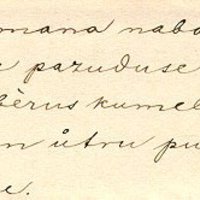 mana nabo
pazuduse
bèrus kumel
n åtru pu
e.